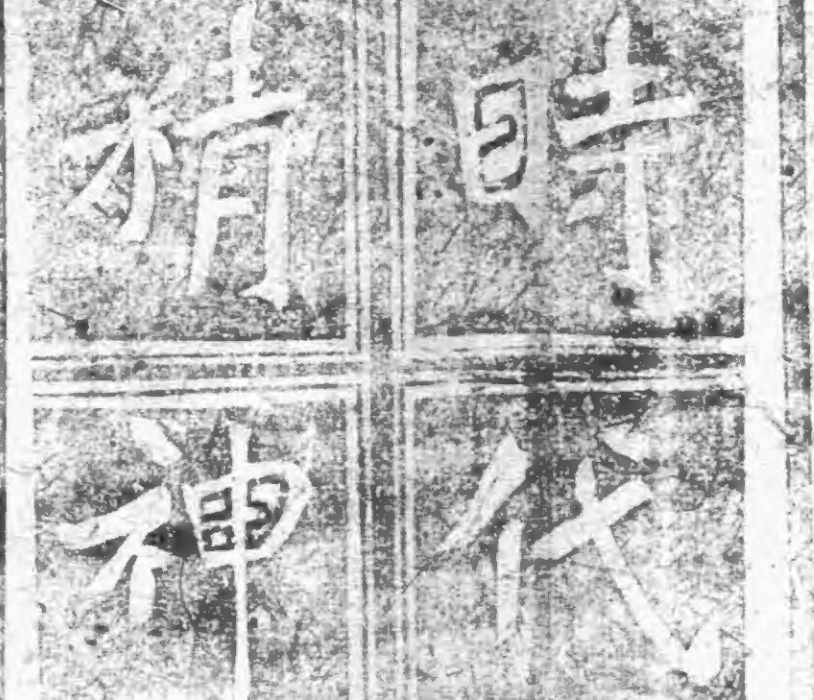 時代
精神